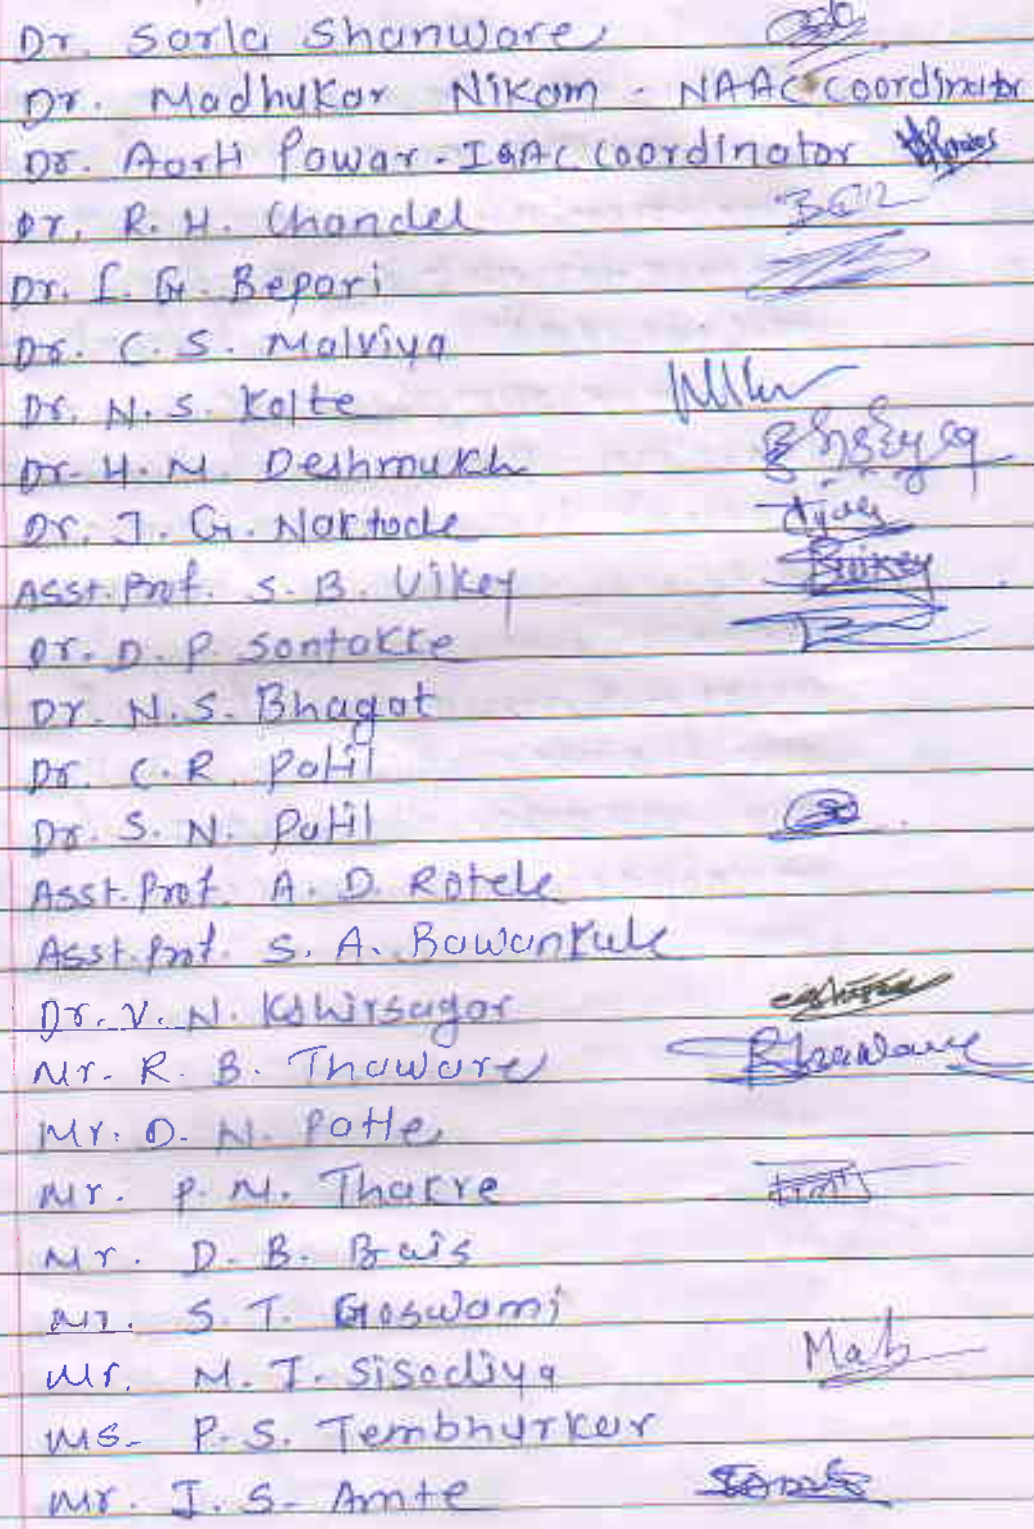 Dr. Sarla Shanware
Dr. Madhukar Nikam - NAAC Coordinator
Dr. Aarti Pawar - IQAC Coordinator
Dr. R. H. Chandel
Dr. I. G. Bepari
Dr. C. S. Malviya
Dr. N. S. Kolte
Dr. H. M. Deshmukh
Dr. J. G. Naktode
Asst. Prof. S. B. Uikey
Dr. D. P. Sontakke
Dr. N. S. Bhagat
Dr. C. R. Patil
Dr. S. N. Patil
Asst. Prof. A. D. Rotele
Asst. Prof. S. A. Bawankule
Dr. V. N. Kshirsagar
Mr. R. B. Thaware
Mr. D. N. Patte
Mr. P. M. Thakre
Mr. D. B. Bais
Mr. S. T. Goswami
Mr. M. J. Sisodiya
Ms. P. S. Tembhurkar
Mr. J. S. Amte